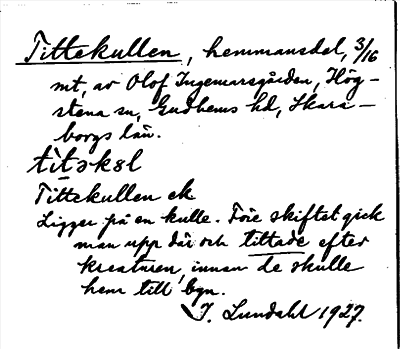 Tittekullen, hemmansdel, 3/16
mt, av Olof Ingemarsgården, Hög-
stena sn, Gudhems hd, Skara-
borgs län.
titəkəl
Tittekullen ek
Ligger på en kulle. Före skiftet gick
man upp där och tittade efter
kreaturen, innan de skulle
hem till byn.
J. Lundahl 1927.